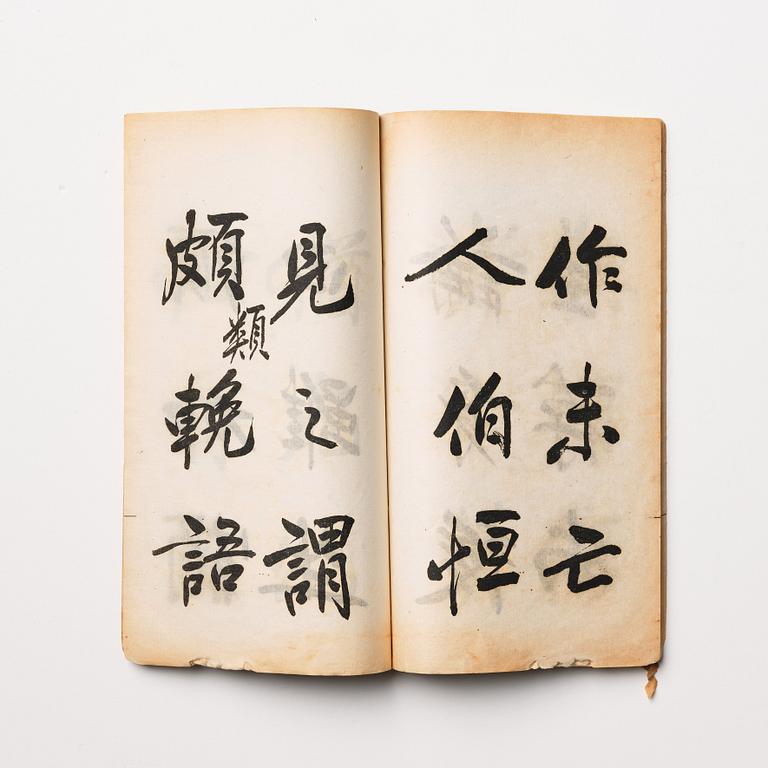 作未亡
人伯恒
見之謂
頗類輓
語